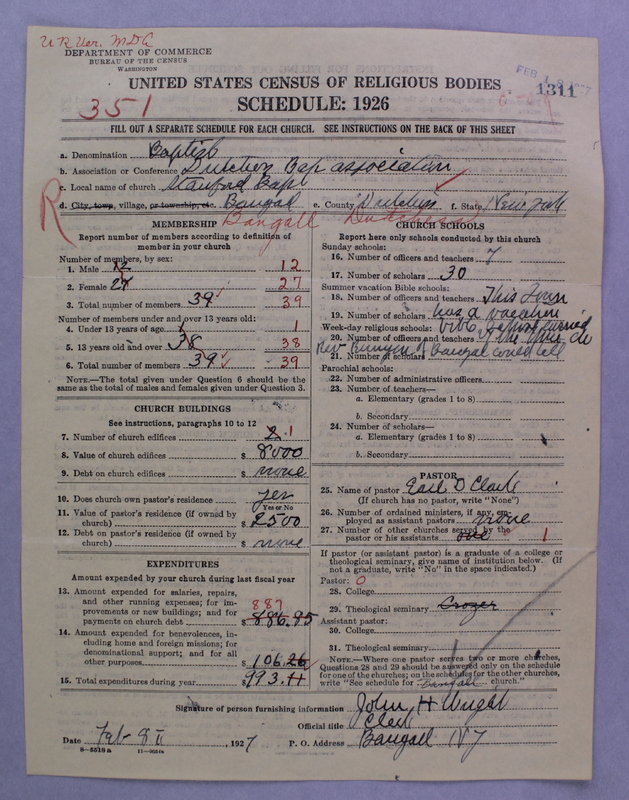 U R Ver. M.D.C
DEPARTMENT OF COMMERCE
BUREAU OF THE CENSUS
WASHINGTON
FEB 18 1927
1311
UNITED STATES CENSUS OF RELIGIOUS BODIES
351
SCHEDULE: 1926
FILL OUT A SEPARATE SCHEDULE FOR EACH CHURCH. SEE INSTRUCTIONS ON THE BACK OF THIS SHEET
a. Denomination Baptist
b. Association or Conference Dutchess Bap association
c. Local name of church Stanford Bapt
d. City, town, village, or township, etc. Bangall e. County Dutchess f. State New York
R Bangall Dutchess
MEMBERSHIP
Report number of members according to definition of
member in your church
Number of members, by sex:
1. Male 12 12
2. Female 27 27
3. Total number of members 39 39
Number of members under and over 13 years old:
4. Under 13 years of age 1 1
5. 13 years old and over 38 38
6. Total number of members 39 39
NOTE.—The total given under Question 6 should be the
same as the total of males and females given under Question 3.
CHURCH BUILDINGS
See instructions, paragraphs 10 to 12
7. Number of church edifices 2 1
8. Value of church edifices $ 8000
9. Debt on church edifices $ none
10. Does church own pastor's residence yes
Yes or No
11. Value of pastor's residence (if owned by
church) $ 2500
12. Debt on pastor's residence (if owned by
church) $ none
EXPENDITURES
Amount expended by your church during last fiscal year
13. Amount expended for salaries, repairs,
and other running expenses; for im-
provements or new buildings; and for
payments on church debt $ 886.85
887
14. Amount expended for benevolences, in-
cluding home and foreign missions; for
denominational support; and for all
other purposes $ 106.26
15. Total expenditures during year $ 993.11
CHURCH SCHOOLS
Report here only schools conducted by this church
Sunday schools:
16. Number of officers and teachers 7
17. Number of scholars 30
Summer vacation Bible schools:
18. Number of officers and teachers This Town
19. Number of scholars has a vacation
Week-day religious schools:
20. Number of officers and teachers
21. Number of scholars
Rev. of Bangall could tell
Parochial schools:
22. Number of administrative officers
23. Number of teachers—
a. Elementary (grades 1 to 8)
b. Secondary
24. Number of scholars—
a. Elementary (grades 1 to 8)
b. Secondary
PASTOR
25. Name of pastor Earl D Clark
(If church has no pastor, write "None")
26. Number of ordained ministers, if any, em-
ployed as assistant pastors none
27. Number of other churches served by the
pastor or his assistants one 1
If pastor (or assistant pastor) is a graduate of a college or
theological seminary, give name of institution below. (If
not a graduate, write "No" in the space indicated.)
Pastor: 0
28. College
29. Theological seminary Crozer
Assistant pastor:
30. College
31. Theological seminary
NOTE.—Where one pastor serves two or more churches,
Questions 28 and 29 should be answered only on the schedule
for one of the churches; on the schedules for the other churches,
write "See schedule for Bangall church."
Signature of person furnishing information John H Wright
Official title Clerk
Date Feb 8th, 1927 P. O. Address Bangall NY
8—5518a 11—9051a